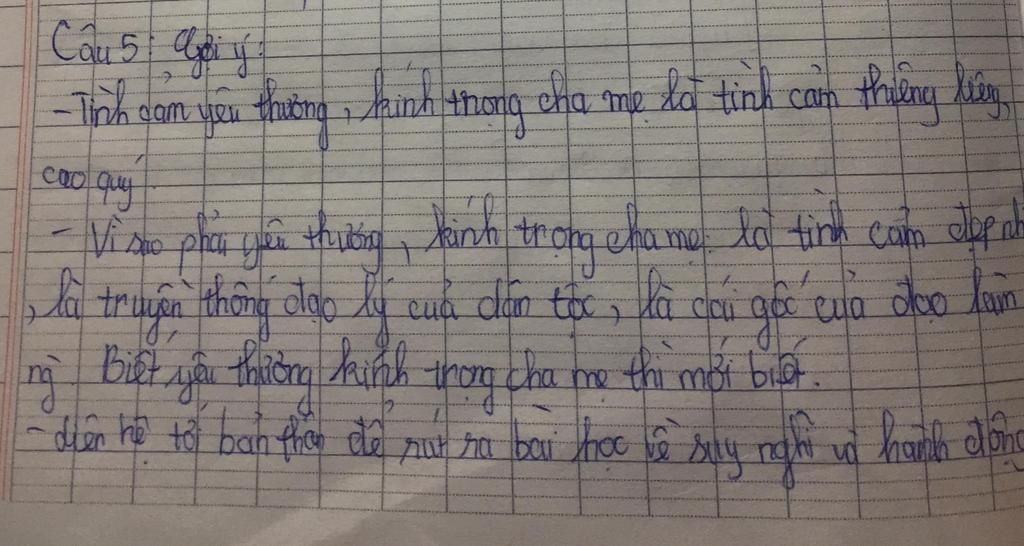 Câu 5: Gợi ý:
- Tình cảm yêu thương, kính trọng cha mẹ là tình cảm thiêng liêng,
cao quý
- Vì sao phải yêu thương, kính trọng cha mẹ. là tình cảm đẹp nh
, là truyền thống đạo lý của dân tộc, là cái gốc của đạo làm
ng. Biết yêu thương kính trọng cha mẹ thì mới biết.
- liên hệ tới bản thân để rút ra bài học về suy nghĩ và hành động